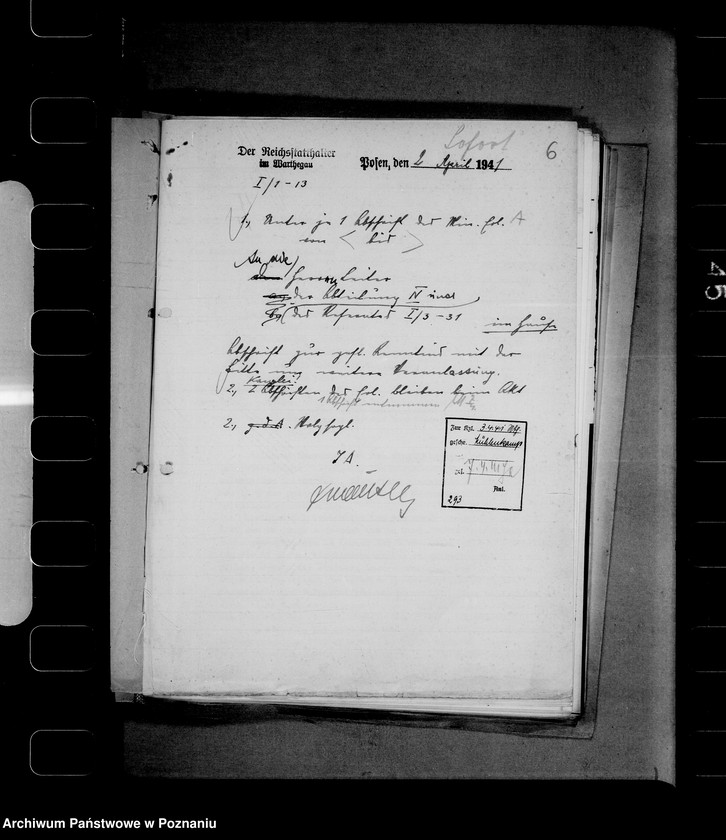 Sofort
6
Der Reichsstatthalter
im Warthegau
Posen, den 2 April 1941
I/1-13
1, Unter je 1 Abschrift des Min. Erl. A
von < bis >
An die
Herren Leiter
der Abteilung IV und
des Referates I/3-31
im Hause
Abschrift zur gefl. Kenntnis mit der
Bitte um weitere Veranlassung.
Kanzlei:
2, 2 Abschriften des Erl. bleiben beim Akt
1 Abschrift entnommen
2, Wv.
I A.
Zur Kzl. 3.4.41
geschr. Kuhlenkamp
Anl.
293
45
Archiwum Państwowe w Poznaniu